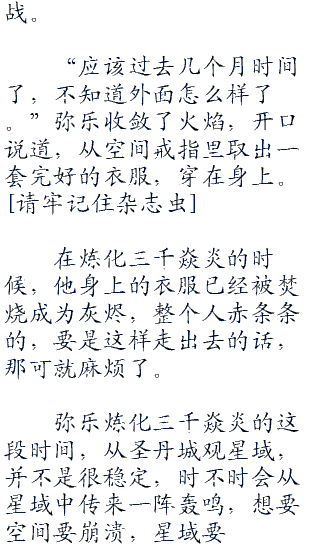 战。
“应该过去几个月时间
了，不知道外面怎么样了
。”弥乐收敛了火焰，开口
说道，从空间戒指里取出一
套完好的衣服，穿在身上。
[请牢记住杂志虫]
在炼化三千焱炎的时
候，他身上的衣服已经被焚
烧成为灰烬，整个人赤条条
的，要是这样走出去的话，
那可就麻烦了。
弥乐炼化三千焱炎的这
段时间，从圣丹城观星域，
并不是很稳定，时不时会从
星域中传来一阵轰鸣，想要
空间要崩溃，星域要